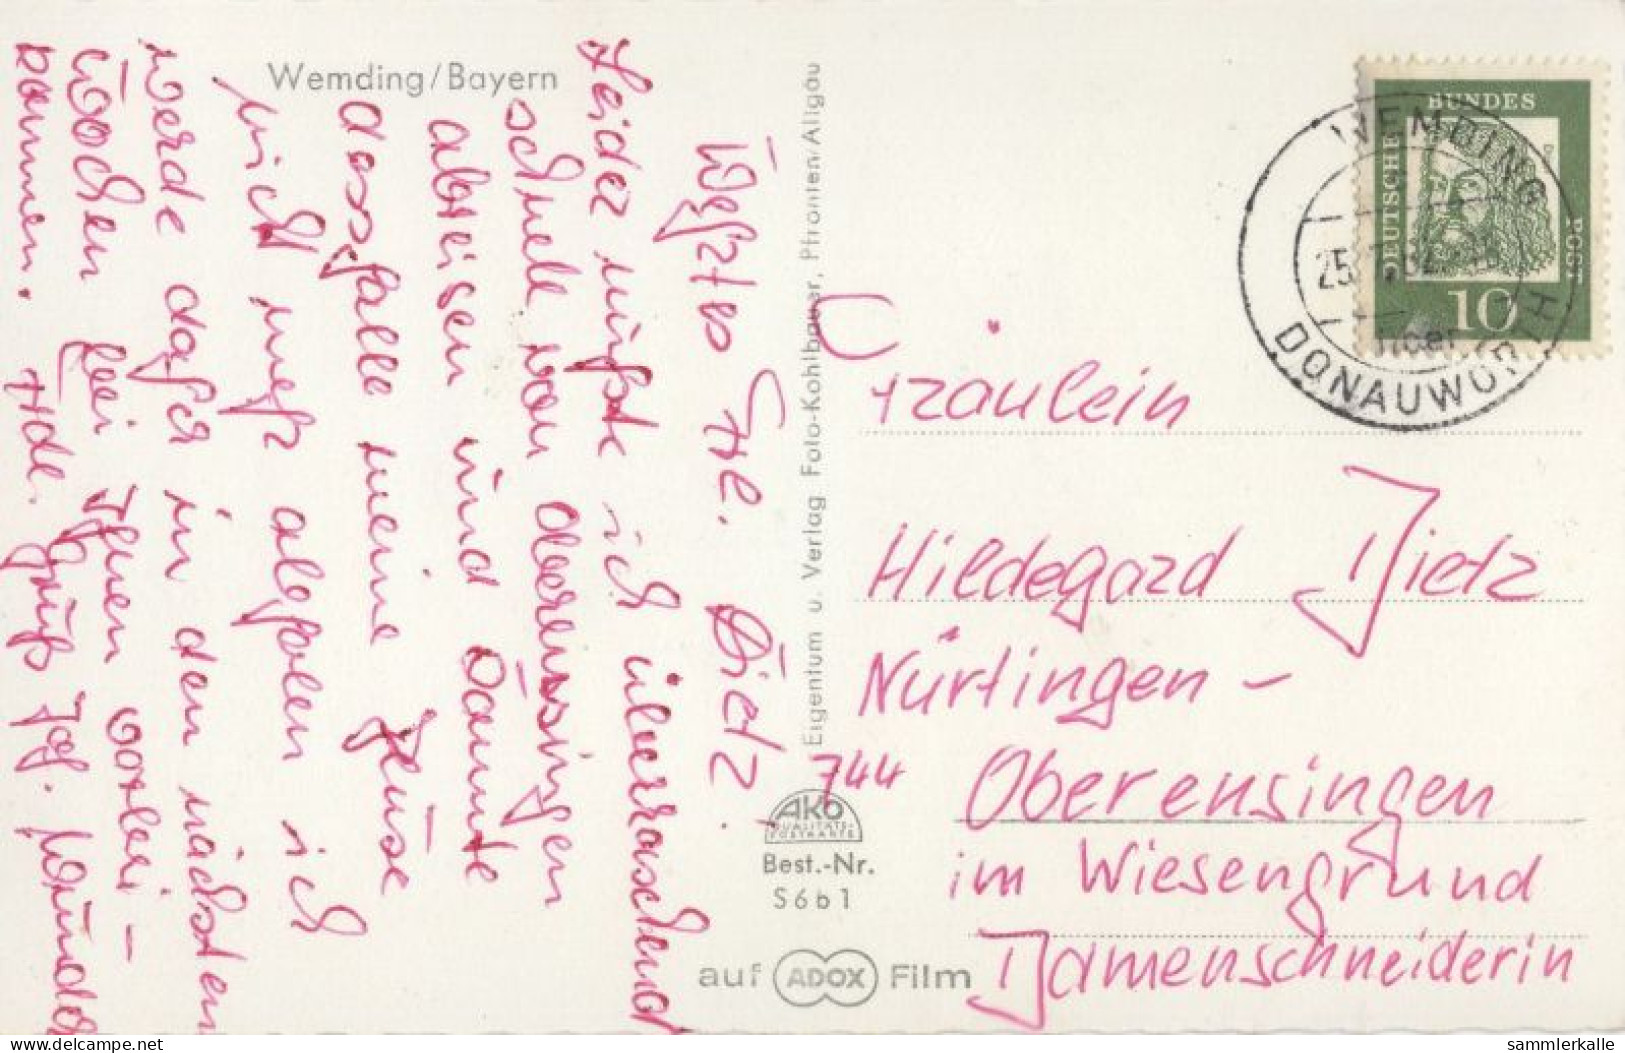 Wemding/Bayern
Wertes Frl. Dietz.
Leider mußte ich überraschend
schnell von Oberensingen
abreisen und konnte
desfalls meine Bluse
nicht mehr abholen ich
werde daher in den nächsten
Wochen bei Ihnen vorbei-
kommen. Hdl. Grüße
Eigentum u. Verlag Foto-Kohlbauer, Pfronten/Allgäu
AKO
QUALITÄTS-
POSTKARTE
Best.-Nr.
S6b1
auf ADOX Film
DEUTSCHE BUNDESPOST
10
WEMDING
25
DONAUWÖRTH
Fräulein
Hildegard Dietz
744 Nürtingen -
Oberensingen
im Wiesengrund
Damenschneiderin
www.delcampe.net
sammlerkalle